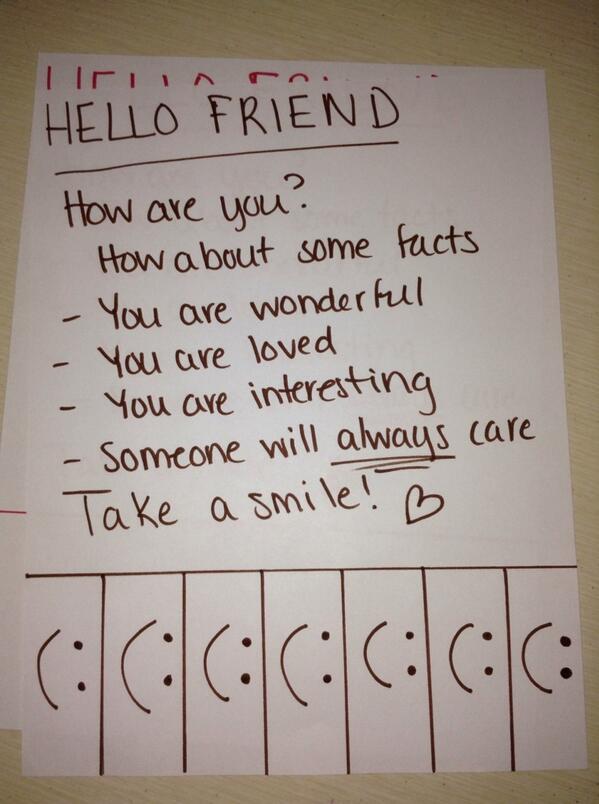 HELLO FRIEND
How are you?
How about some facts
- You are wonderful
- You are loved
- You are interesting
- Someone will always care
Take a smile! ♡
(: (: (: (: (: (: (: